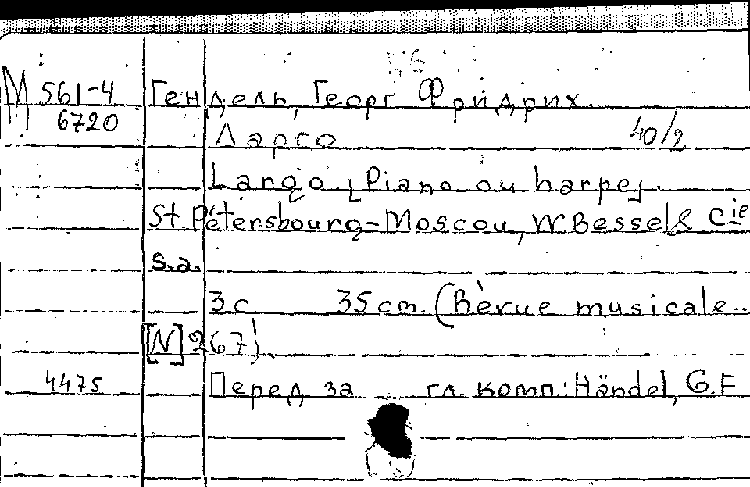 М 561-4 Гендель, Георг Фридрих
6720
Ларго 40/2
Largo [Piano ou harpe]
St Pétersbourg-Moscou, W Bessel & Cie
s.a.
3 с 35 cm. (Revue musicale..
[N] 267).
4475 Перед за гл. комп: Händel, G.F